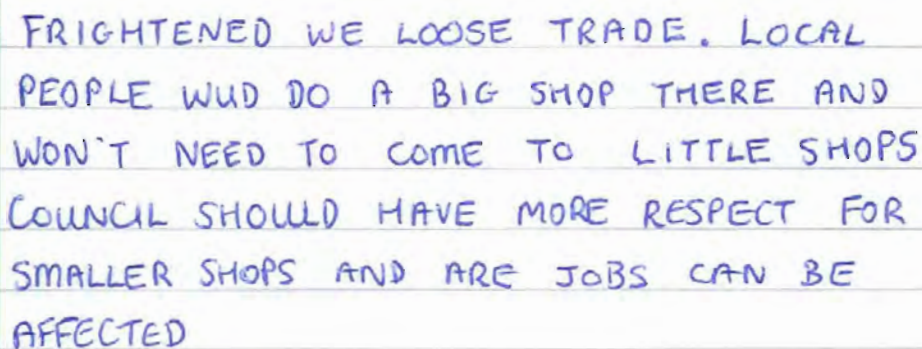 FRIGHTENED WE LOOSE TRADE. LOCAL
PEOPLE WUD DO A BIG SHOP THERE AND
WON'T NEED TO COME TO LITTLE SHOPS
COUNCIL SHOULD HAVE MORE RESPECT FOR
SMALLER SHOPS AND ARE JOBS CAN BE
AFFECTED